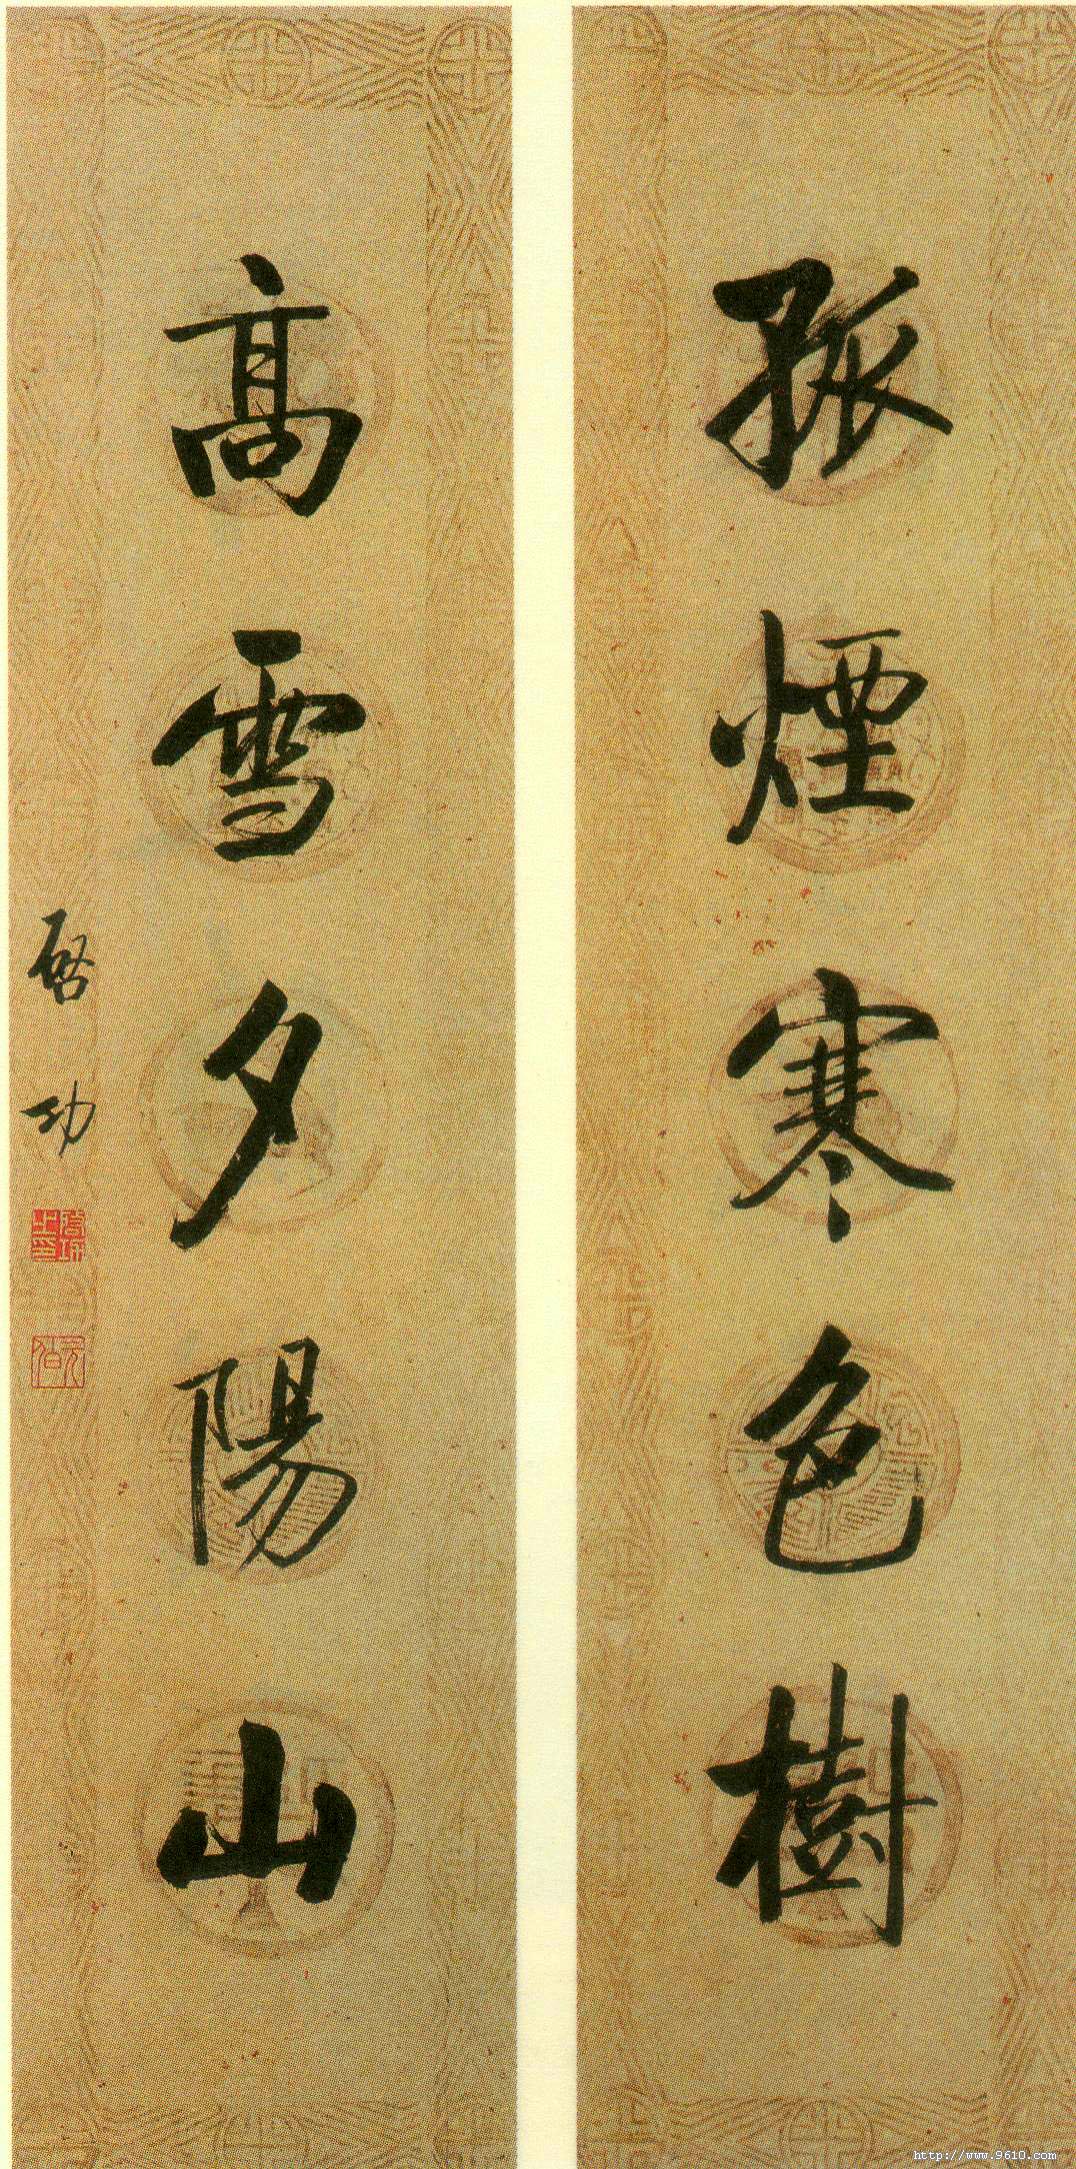 孤煙寒色樹
高雪夕陽山
啓功
啓功之印
元白
http://www.9610.com